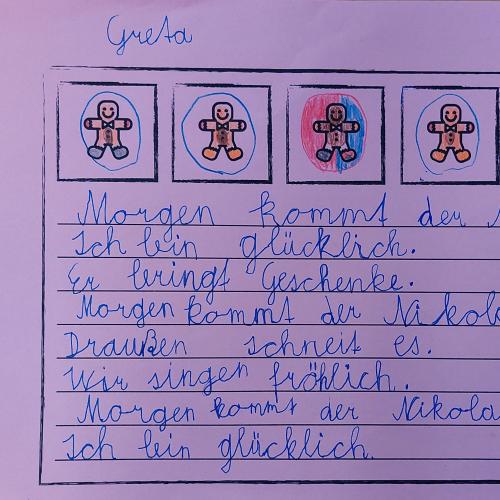 Greta
Morgen kommt der
Ich bin glücklich.
Er bringt Geschenke.
Morgen kommt der Nikol
Draußen schneit es.
Wir singen fröhlich.
Morgen kommt der Nikola
Ich bin glücklich.